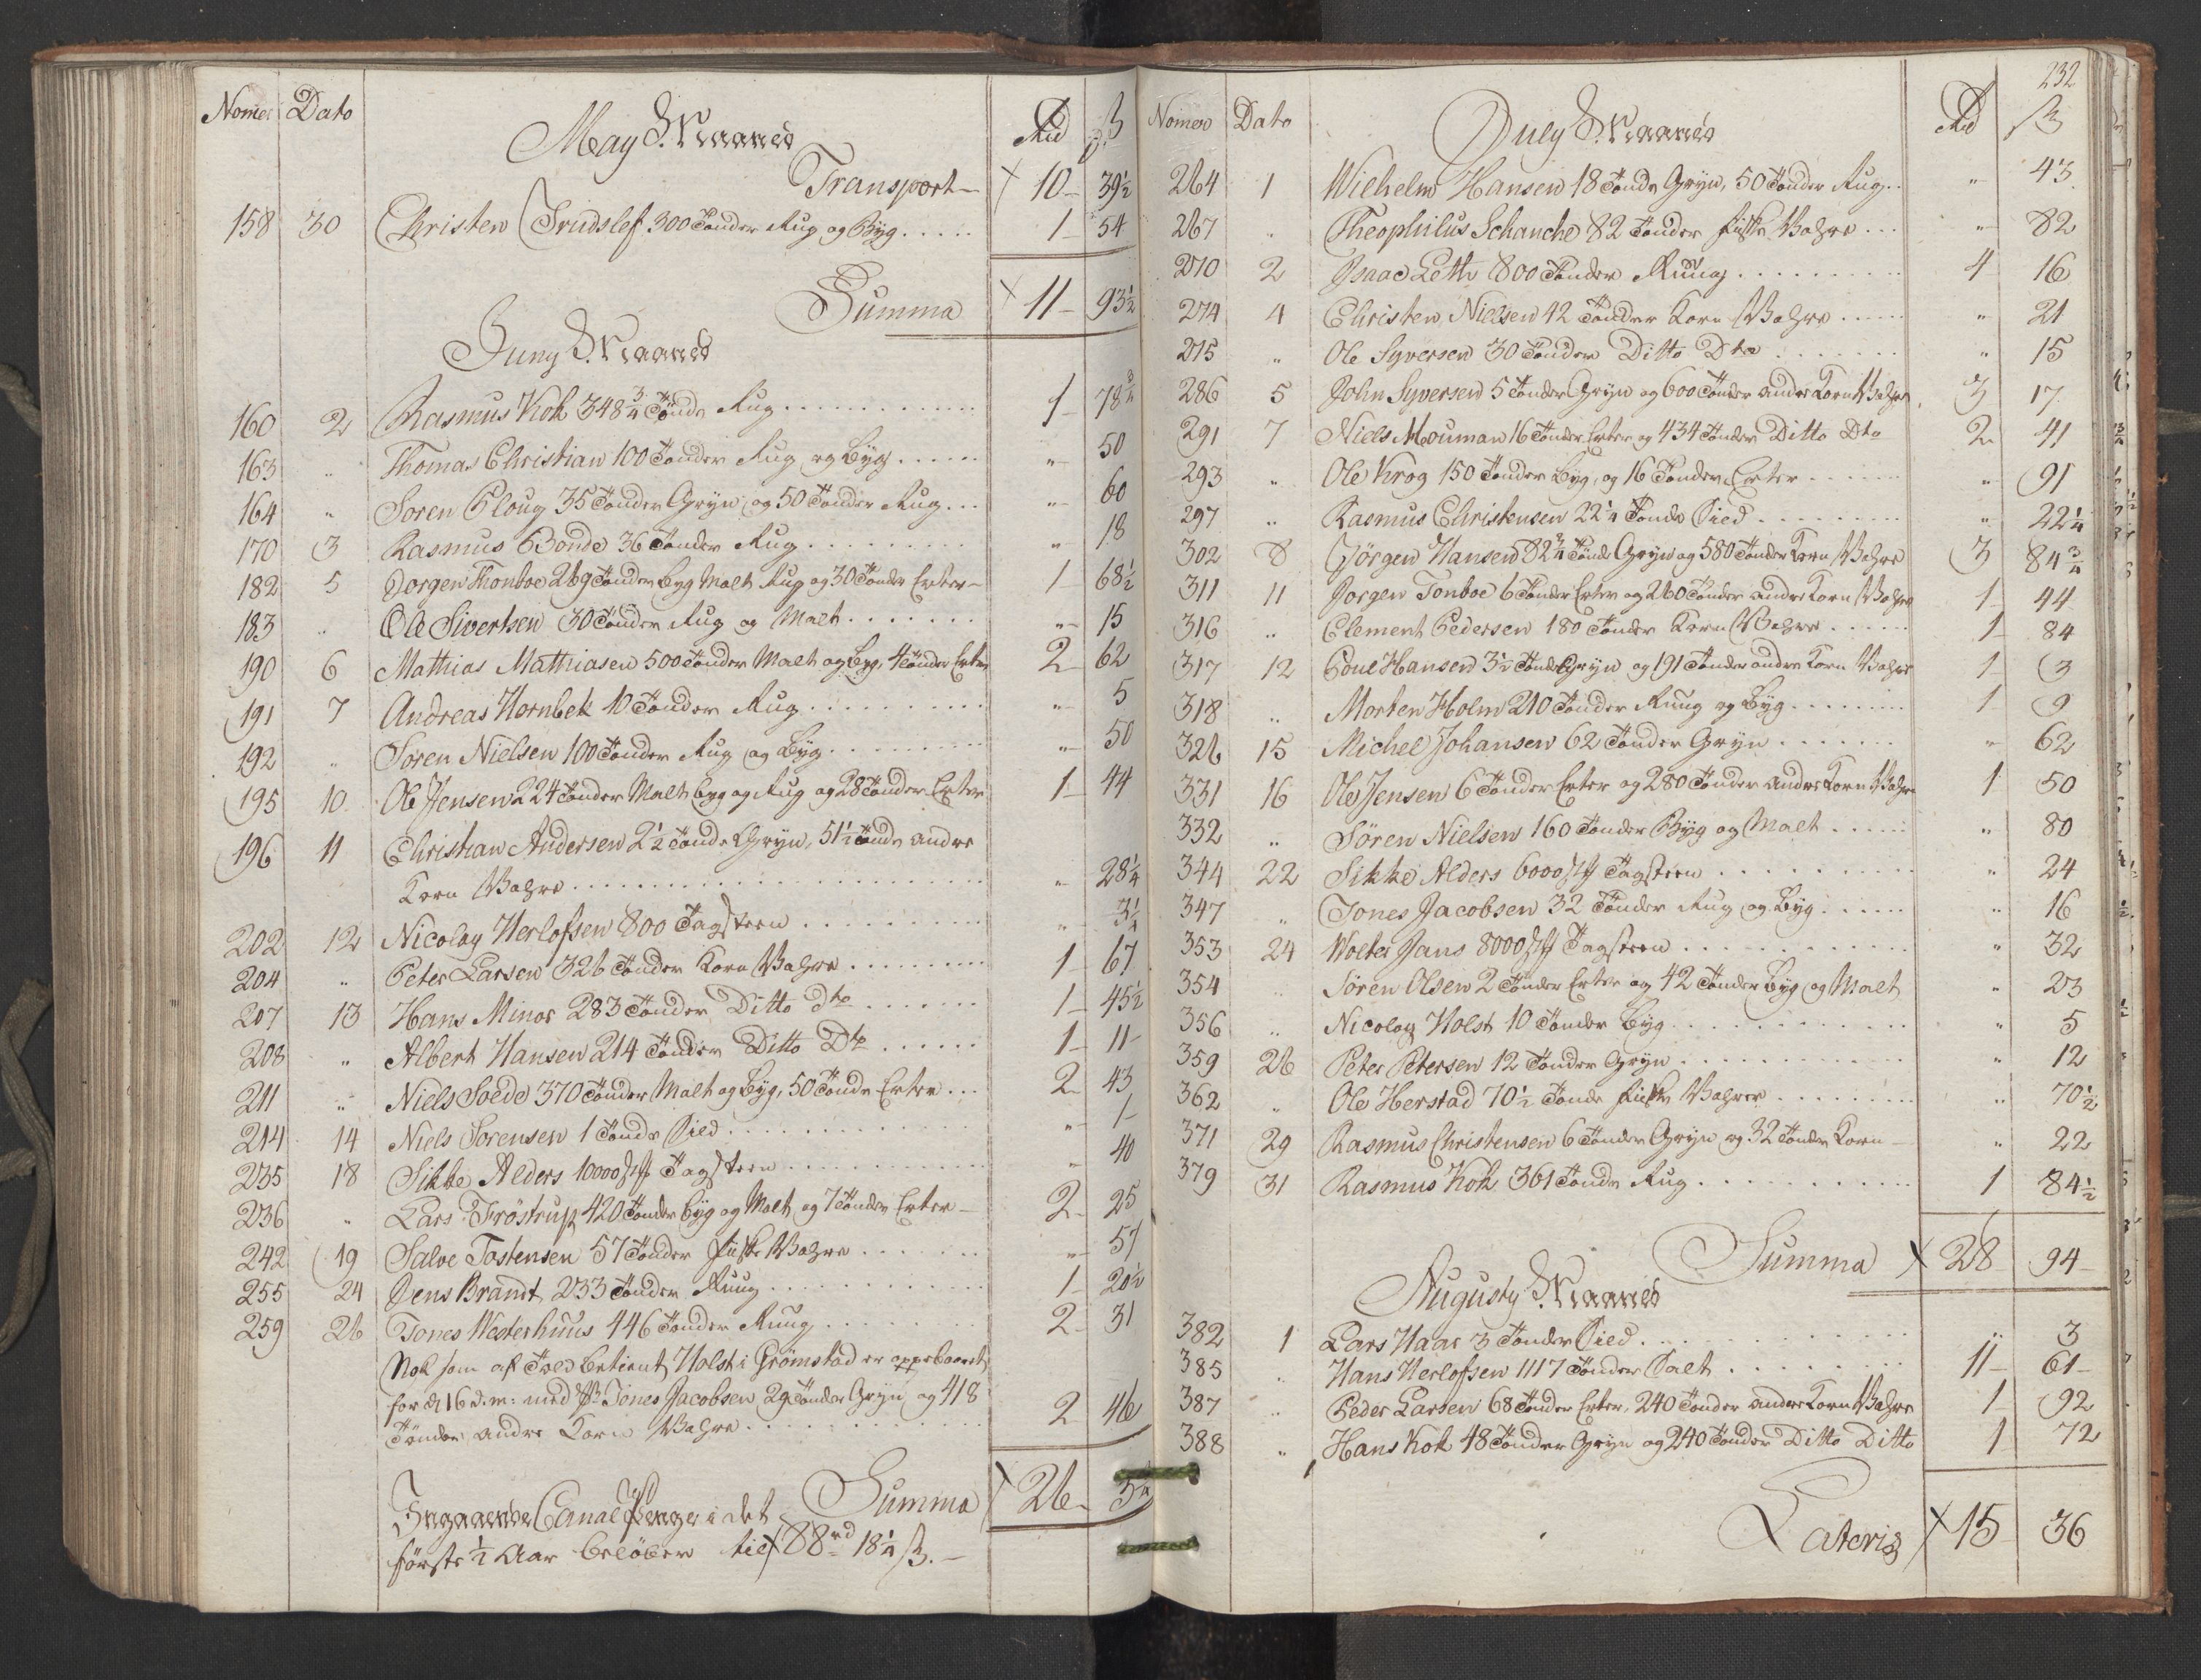 Nomer Dato Rd ß
May Maaned
Transport 10 39½
158 30 Christen Trudslef 300 Tønder Rug og Byg 1 54
Summa 11 93½
Juny Maaned
160 2 Rasmus Kok 348¾ Tønde Rug 1 78¾
163 " Thomas Christian 100 Tønder Rug og Byg " 50
164 " Soren Ploug 35 Tønder Gryn og 50 Tønder Rug " 60
170 3 Rasmus Bonde 36 Tønder Rug " 18
182 5 Jorgen Thonboe 269 Tønder Byg Malt Rug og 30 Tønder Erter 1 68½
183 " Ole Sivertsen 30 Tønder Rug og Malt " 15
190 6 Mathias Mathiasen 500 Tønder Malt og Byg, 4 Tønder Erter 2 62
191 7 Andreas Hornbek 10 Tønder Rug " 5
192 " Soren Nielsen 100 Tønder Rug og Byg " 50
195 10 Ole Jensen 224 Tønder Malt Byg og Rug og 28 Tønder Erter 1 44
196 11 Christian Andersen 2½ Tønde Gryn, 51½ Tønde andre
Korn Vahre " 28¼
202 12 Nicolay Herlofsen 800 Tagsteen " 3¼
204 " Peter Larsen 326 Tønder Korn Vahre 1 67
207 13 Hans Minor 283 Tønder Ditto dto 1 45½
208 " Albert Hansen 214 Tønder Ditto Dto 1 11
211 " Niels Soede 370 Tønder Malt og Byg, 50 Tønde Erter 2 43
214 14 Niels Sorensen 1 Tønde Sied " 1
235 18 Sikke Alders 10000 st Tagsteen " 40
236 " Lars Tröstrup 420 Tønder Byg og Malt og 7 Tønder Erter 2 25
242 19 Salve Tostensen 57 Tønder fiske Vahre " 57
255 24 Jens Brandt 233 Tønder Ruug 1 20½
259 26 Tones Westerhuus 446 Tønder Ruug 2 31
Nok som af Told betient Holst i Grömstad er oppebaaret
for d 16 d. m: med Sk. Tones Jacobsen 29 Tønder Gryn og 418
Tønder andre Korn Vahre 2 46
Summa 26
Indgaaende Canal Penge i det
første ½ Aar beløber til 88 rd 18¼ ß.
232
Nomero Dato Rd ß
July Maaned
264 1 Wilhelm Hansen 18 Tønde Gryn, 50 Tønder Rug " 43
267 " Theophilus Schanche 82 Tønder fiske Vahre " 82
270 2 Isaac Leth 800 Tønder Ruug 4 16
274 4 Christen Nielsen 42 Tønder Korn Vahre " 21
275 " Ole Syversen 30 Tønder Ditto Dto " 15
286 5 John Syversen 5 Tønder Gryn og 600 Tønder andre Korn Vahre 3 17
291 7 Niels Mouman 16 Tønder Erter og 434 Tønder Ditto Dto 2 41
293 " Ole Krog 150 Tønder Byg, og 16 Tønder Erter " 91
297 " Rasmus Christensen 22¼ Tønde Sied " 22¼
302 8 Jörgen Hansen 82¾ Tønde Gryn og 580 Tønder Korn Vahre 3 84¾
311 11 Jorgen Tonboe 6 Tønder Erter og 260 Tønder andre Korn Vahre 1 44
316 " Clement Pedersen 180 Tønder Korn Vahre 1 84
317 12 Poul Hansen 3½ Tønde Gryn og 191 Tønder andre Korn Vahre 1 3
318 " Morten Holm 210 Tønder Ruug og Byg 1 9
326 15 Michel Johansen 62 Tønder Gryn " 62
331 16 Ole Jensen 6 Tønder Erter og 280 Tønder andre Korn Vahre 1 50
332 " Sören Nielsen 160 Tønder Byg og Malt " 80
344 22 Sikke Alders 6000 st Tagsteen " 24
347 " Tones Jacobsen 32 Tønder Rug og Byg " 16
353 24 Wolter Jans 8000 st Tagsteen " 32
354 " Sören Olsen 2 Tønder Erter og 42 Tønder Byg og Malt " 23
356 " Nicolay Holst 10 Tønder Byg " 5
359 26 Peter Petersen 12 Tønder Gryn " 12
362 " Ole Herstad 70½ Tønde fiske Vahrer " 70½
371 29 Rasmus Christensen 6 Tønder Gryn og 32 Tønder Korn " 22
379 31 Rasmus Kok 361 Tønde Rug 1 84½
Summa 28 94
Augusty Maaned
382 1 Lars Haar 3 Tønder Sied " 3
385 " Hans Herlofsen 1117 Tønder Salt 11 61
387 " Peder Larsen 68 Tønder Erter, 240 Tønder andre Korn Vahre 1 92
388 " Hans Kok 48 Tønder Gryn og 240 Tønder Ditto Ditto 1 72
Lateris 15 36